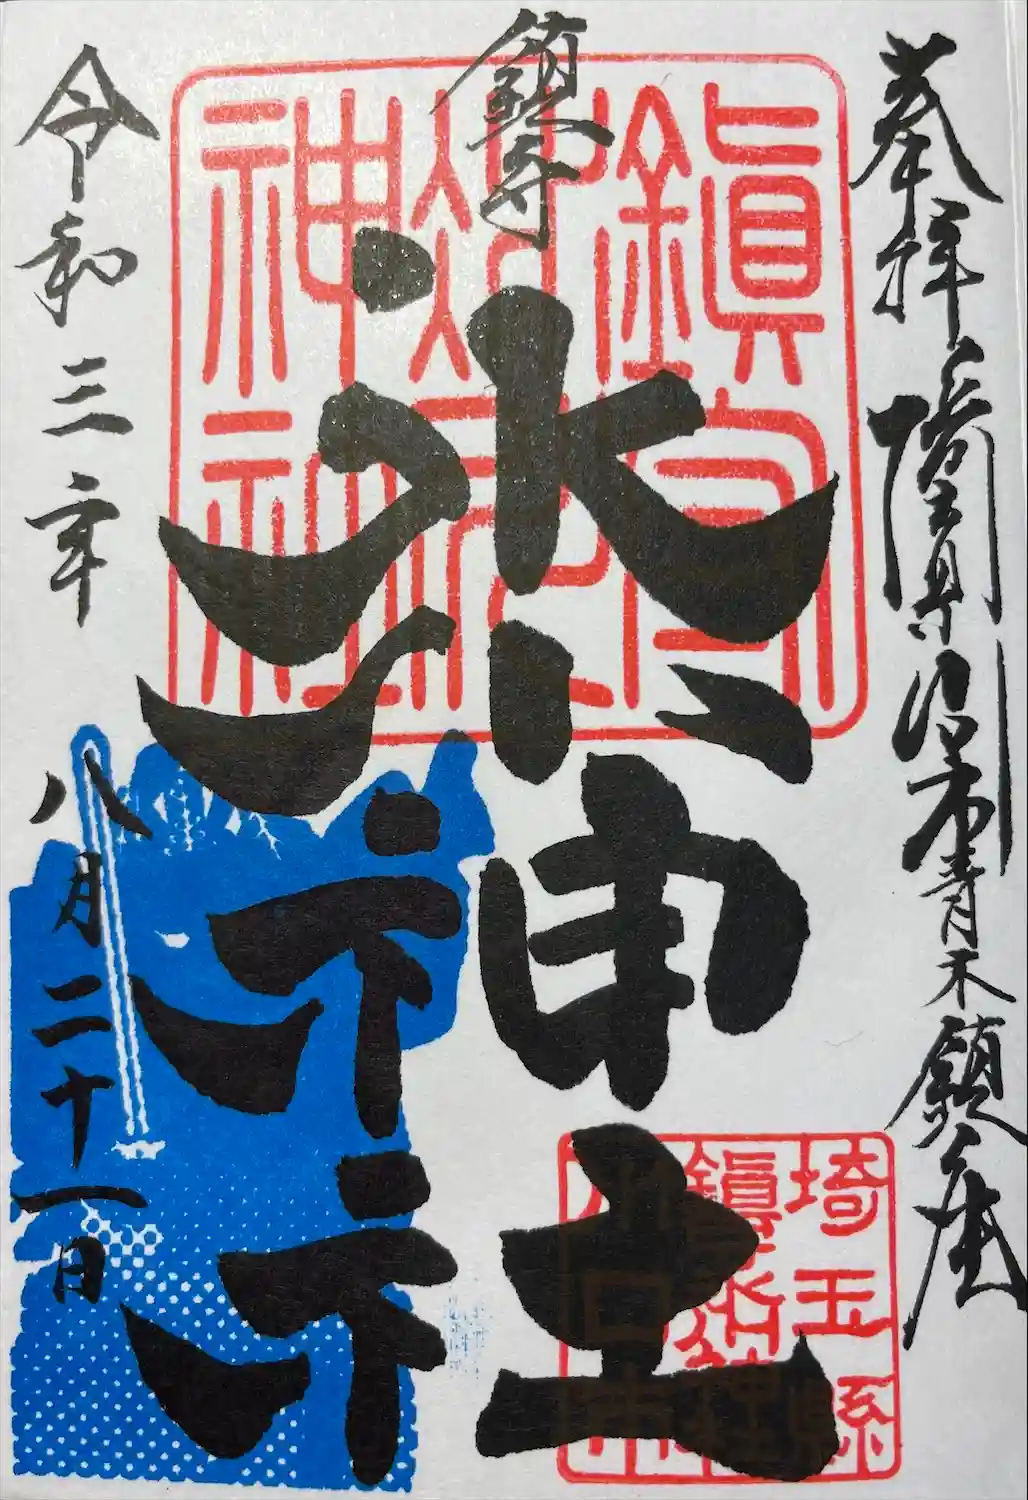 奉拝 埼玉県川口市青木鎮座
鎮守
氷川神社
令和三年
八月二十一日
埼玉縣
鎮守氷川神社
川口市